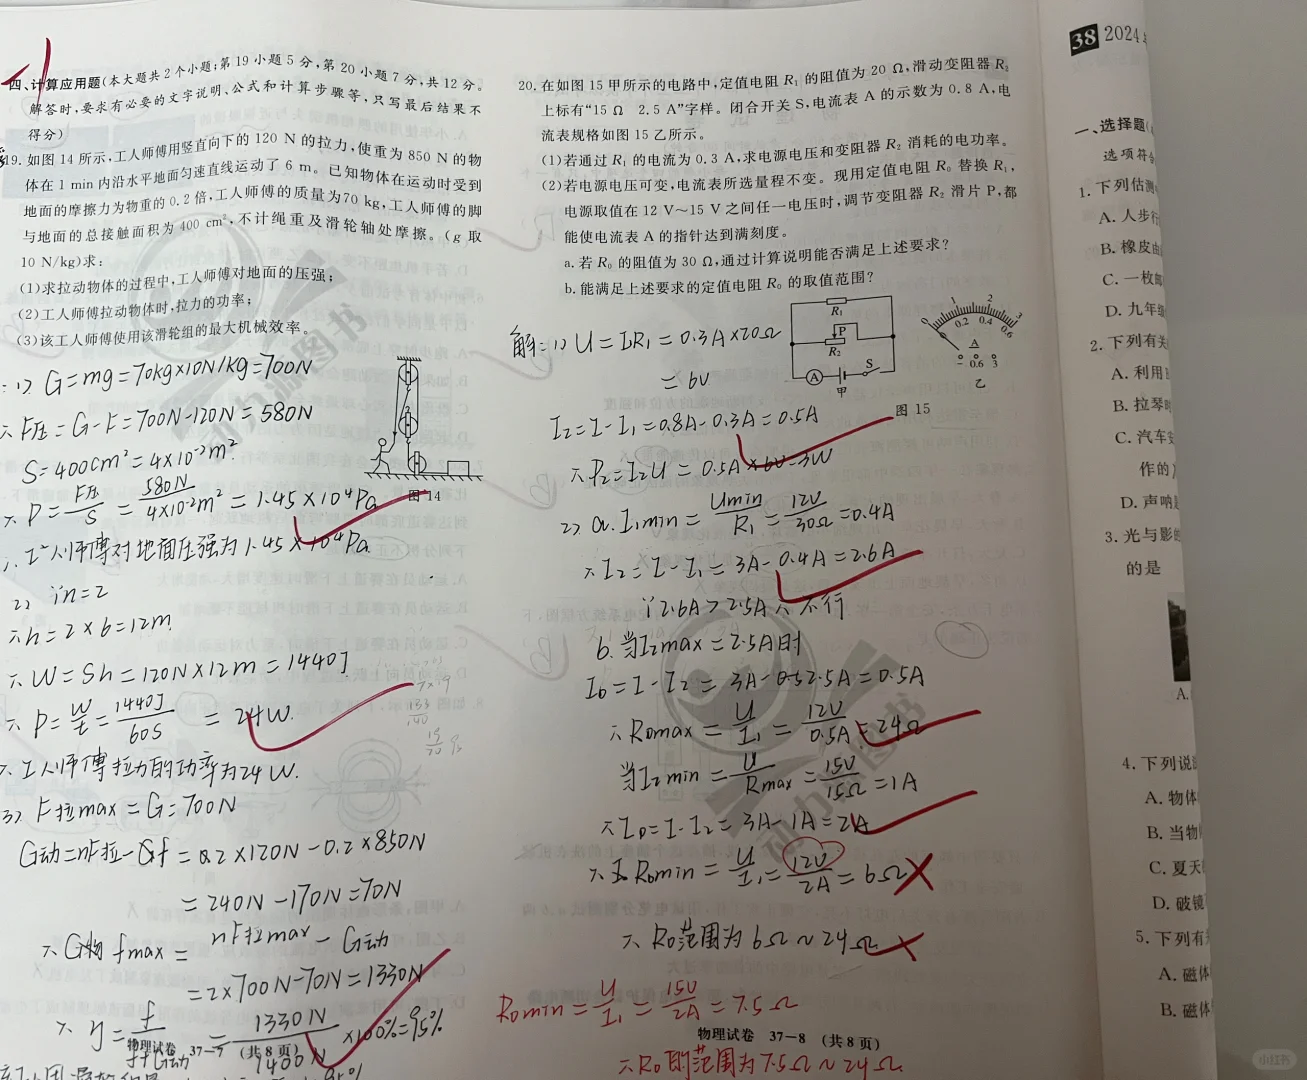 四、计算应用题(本大题共2个小题;第19小题5分,第20小题7分,共12分。
解答时,要求有必要的文字说明、公式和计算步骤等,只写最后结果不
得分)
19.如图14所示,工人师傅用竖直向下的120 N的拉力,使重为850 N的物
体在1 min内沿水平地面匀速直线运动了6 m。已知物体在运动时受到
地面的摩擦力为物重的0.2倍,工人师傅的质量为70 kg,工人师傅的脚
与地面的总接触面积为400 cm²,不计绳重及滑轮轴处摩擦。(g取
10 N/kg)求:
(1)求拉动物体的过程中,工人师傅对地面的压强;
(2)工人师傅拉动物体时,拉力的功率;
(3)该工人师傅使用该滑轮组的最大机械效率。
:1) G=mg=70kg×10N/kg=700N
∴F压=G-F=700N-120N=580N
S=400cm²=4×10⁻²m²
∴P=F压/S=580N/4×10⁻²m²=1.45×10⁴Pa
图14
∴工人师傅对地面压强为1.45×10⁴Pa
2) ∵n=2
∴h=2×6=12m
∴W=Sh=120N×12m=1440J
∴P=W/t=1440J/60S=24W.
∴工人师傅拉力的功率为24W.
3) F拉max=G=700N
G动=nF拉-Gf=0.2×120N-0.2×850N
=240N-170N=70N
∴G物fmax=nF拉max-G动
=2×700N-70N=1330N
∴η=f/f+G动=1330N/1400N×100%=95%
物理试卷 37-7 (共8页)
20.在如图15甲所示的电路中,定值电阻R₁的阻值为20 Ω,滑动变阻器R₂
上标有“15 Ω 2.5 A”字样。闭合开关S,电流表A的示数为0.8 A,电
流表规格如图15乙所示。
(1)若通过R₁的电流为0.3 A,求电源电压和变阻器R₂消耗的电功率。
(2)若电源电压可变,电流表所选量程不变。现用定值电阻R₀替换R₁,
电源取值在12 V~15 V之间任一电压时,调节变阻器R₂滑片P,都
能使电流表A的指针达到满刻度。
a.若R₀的阻值为30 Ω,通过计算说明能否满足上述要求?
b.能满足上述要求的定值电阻R₀的取值范围?
R₁
P
R₂
A
S
甲
0 1 2 3
0.2 0.4 0.6
A
- 0.6 3
乙
图15
解:1) U=IR₁=0.3A×20Ω
=6V
I₂=I-I₁=0.8A-0.3A=0.5A
∴P₂=I₂U=0.5A×6V=3W
2) a.I₁min=Umin/R₁=12V/30Ω=0.4A
∴I₂=I-I₁=3A-0.4A=2.6A
∵2.6A>2.5A∴不行
b.当I₂max=2.5A时
I₀=I-I₂=3A-2.5A=0.5A
∴R₀max=U/I₁=12V/0.5A=24Ω
当I₂min=U/Rmax=15V/15Ω=1A
∴I₀=I-I₂=3A-1A=2A
∴R₀min=U/I₁=12V/2A=6Ω
∴R₀范围为6Ω~24Ω
R₀min=U/I₁=15V/2A=7.5Ω
物理试卷 37-8 (共8页)
∴R₀的范围为7.5Ω~24Ω
38 2024
一、选择题
选项符
1.下列估测
A.人步行
B.橡皮
C.一枚
D.九年
2.下列有关
A.利用
B.拉琴
C.汽车
作的
D.声呐
3.光与影
的是
A.
4.下列说
A.物体
B.当物
C.夏天
D.破镜
5.下列有
A.磁体
B.磁体
小红书